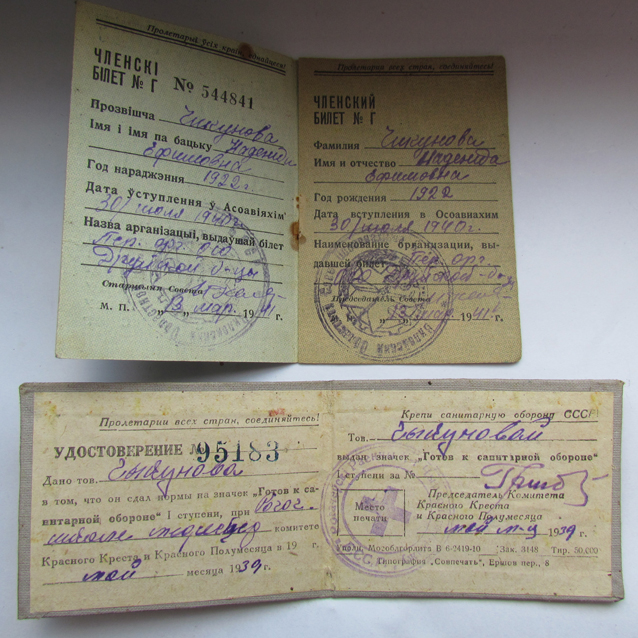 Пролетарыі ўсіх краін, еднайцеся!
ЧЛЕНСКІ
БІЛЕТ № Г № 544841
Прозвішча Чикунова
Імя і імя па бацьку Надежда
Ефимовна
Год нараджэння 1922 г.
Дата ўступлення ў Асоавіяхім
30/июля 1940 г.
Назва арганізацыі, выдаўшай білет
Пер. орг.
Старшыня Совета
М. П. „13" мар. 1941 г.
Пролетарии всех стран, соединяйтесь!
ЧЛЕНСКИЙ
БИЛЕТ № Г
Фамилия Чикунова
Имя и отчество Надежда
Ефимовна
Год рождения 1922
Дата вступления в Осоавиахим
30/июля 1940 г.
Наименование организации, вы-
давшей билет Пер. орг.
Председатель Совета
„13" мар. 1941 г.
Пролетарии всех стран, соединяйтесь!
УДОСТОВЕРЕНИЕ № 95183
Дано тов.
в том, что он сдал нормы на значек „Готов к са-
нитарной обороне" I ступени, при
школе комитете
Красного Креста и Красного Полумесяца в 19 г.
май месяца 1939 г.
Крепи санитарную оборону СССР
Тов.
выдан значек „Готов к санитарной обороне"
I ступени за №
Место
печати
Председатель Комитета
Красного Креста
и Красного Полумесяца
май м-ц 1939
Мособлгорлита В 6/2419-10 Зак. 3148 Тир. 50,000
Типография "Совпечать", Ершов пер., 8